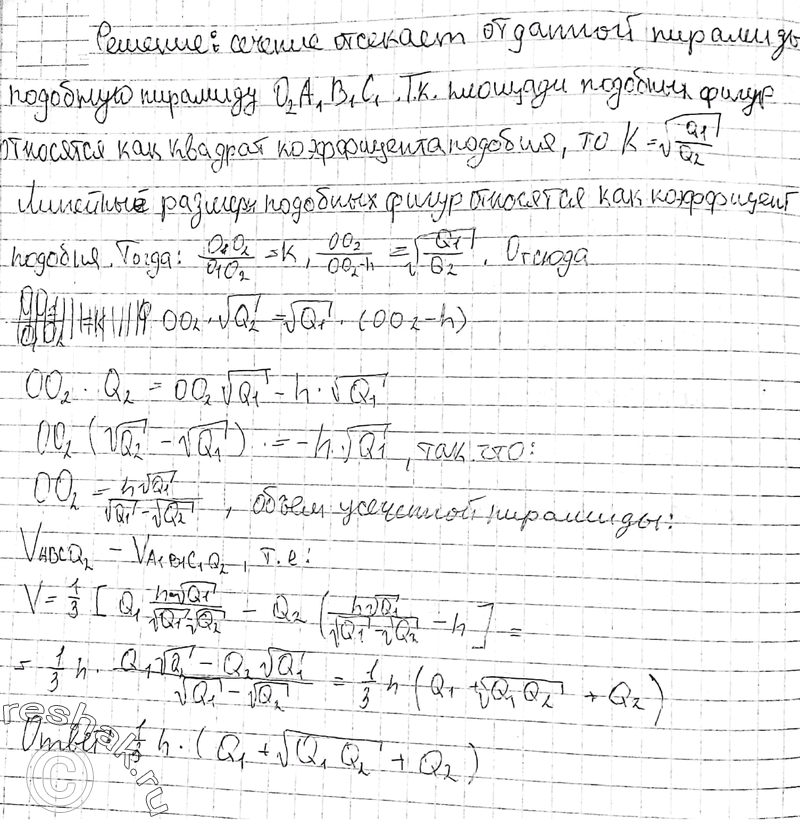 Решение: сечение отсекает от данной пирамиды
подобную пирамиду O₂A₁B₁C₁. Т.к. площади подобных фигур
относятся как квадрат коэффицента подобия, то K = √(Q₁/Q₂)
Линейные размеры подобных фигур относятся как коэффицент
подобия. Тогда: O₁O₂/O₁O₂ = K, OO₂/(OO₂-h) = √(Q₁/Q₂). Отсюда
OO₂ · √Q₂ = √Q₁ · (OO₂ - h)
OO₂ · Q₂ = OO₂ √Q₁ - h · √Q₁
OO₂ (√Q₂ - √Q₁) = -h · √Q₁, так что:
OO₂ = h√Q₁/(√Q₁ - √Q₂), объем усеченной пирамиды:
V_ABCQ₂ - V_A₁B₁C₁Q₂, т.е:
V = 1/3 [Q₁ h√Q₁/(√Q₁-√Q₂) - Q₂ (h√Q₁/(√Q₁-√Q₂) - h] =
= 1/3 h · (Q₁√Q₁ - Q₂√Q₁)/(√Q₁ - √Q₂) = 1/3 h (Q₁ + √(Q₁Q₂) + Q₂)
Ответ: 1/3 h · (Q₁ + √(Q₁Q₂) + Q₂)
reshak.ru
©